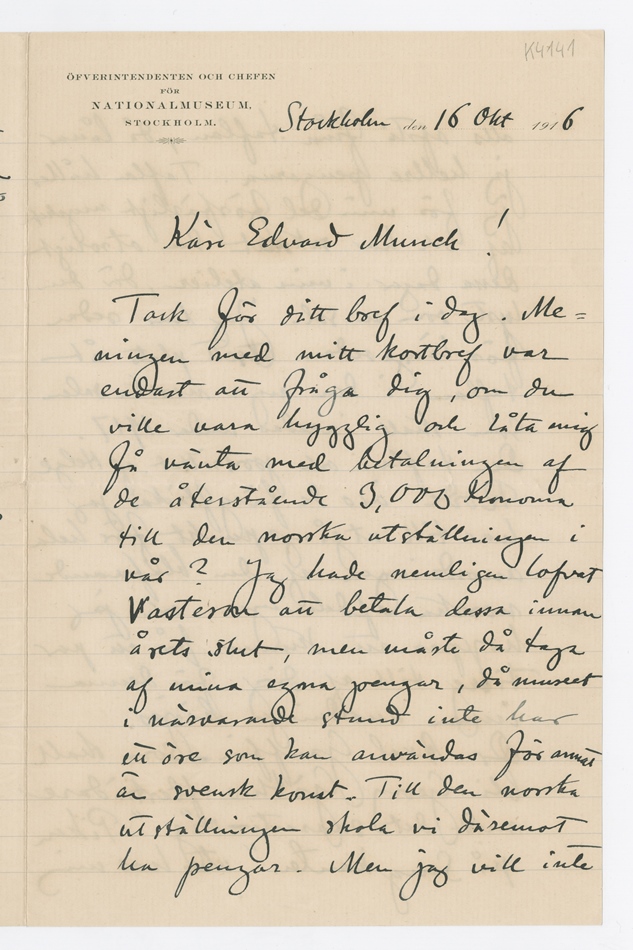 K4141
ÖFVERINTENDENTEN OCH CHEFEN
FÖR
NATIONALMUSEUM,
STOCKHOLM.
Stockholm den 16 Okt 1916
Käre Edvard Munch!
Tack för ditt bref i dag. Me=
ningen med mitt kortbref var
endast att fråga dig, om du
ville vara hygglig och låta mig
få vänta med betalningen af
de återstående 3,000 kronorna
till den norska utställningen i
vår? Jag hade nemligen lofvat
att betala dessa innan
årets slut, men måste då taga
af mina egna pengar, då museet
i närvarande stund inte har
ett öre som kan användas för annat
än svensk konst. Till den norska
utställningen skola vi däremot
ha pengar. Men jag vill inte